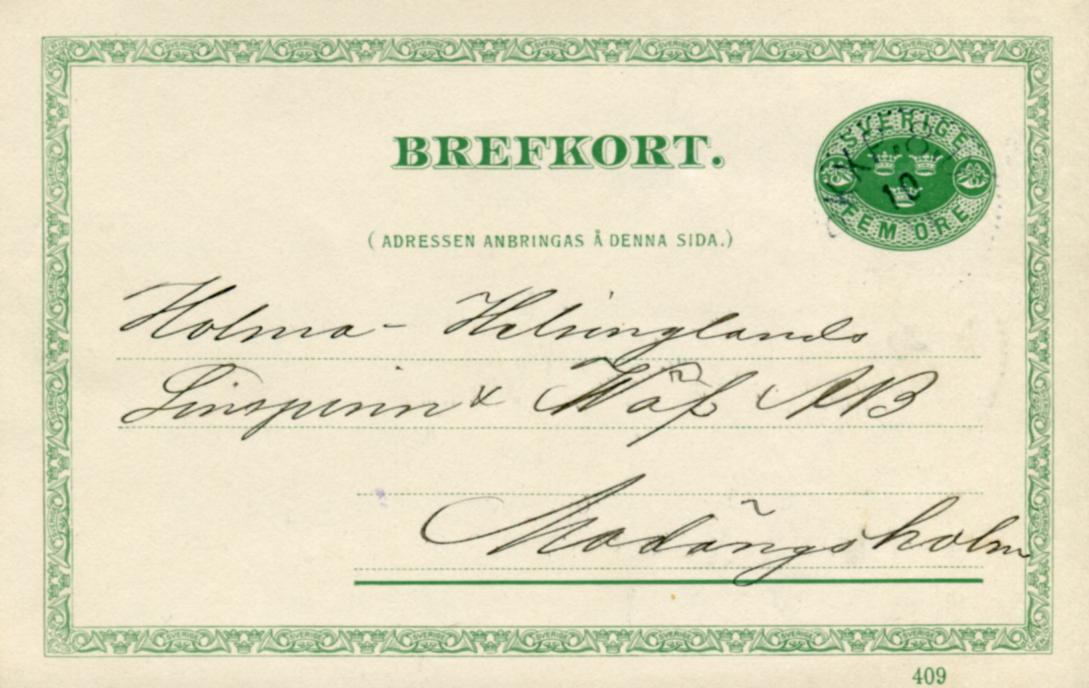 BREFKORT.
SVERIGE
FEM ÖRE
10
(ADRESSEN ANBRINGAS Å DENNA SIDA.)
Holma- Helsinglands
Linspinn & Wäf AB
Madängsholm
409